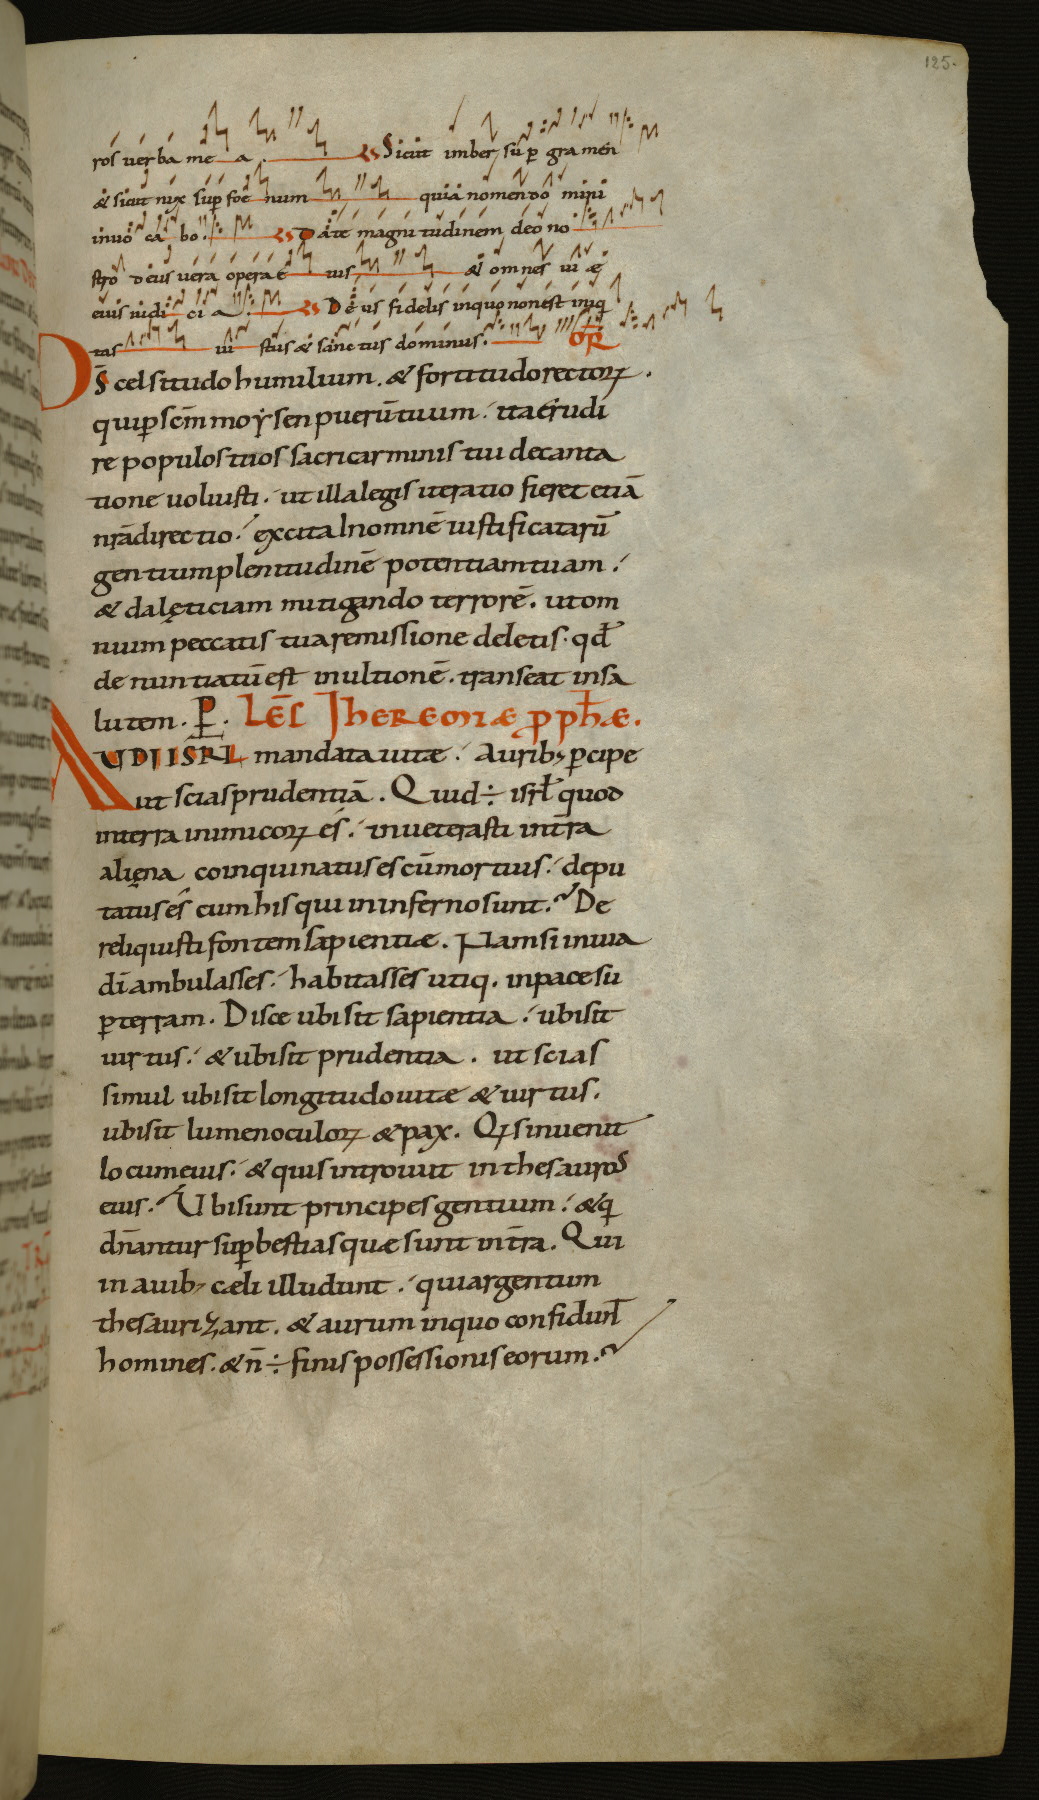 125.
ros uerba me a. Sicut imber sup gramen
& sicut nix sup foe num quia nomen dñi
inuo ca bo. Date magni tudinem deo no
stro deus uera opera e ius & omnes ui æ
eius iudi ci a. Deus fidelis in quo non est iniq
tas iu stus & sanctus dominus. OR
D̄s celsitudo humilium. & fortitudo rectorꝝ.
qui p scm̄ moẏsen puerū tuum. ita erudi
re populos tuos sacri carminis tui decanta
tione uoluisti. ut illa legis iteratio fieret etiā
nr̄a directio. excita In omnē iustificatarū
gentium plenitudinē potentiam tuam.
& da lęticiam mitigando terrorē. ut om
nium peccatis tua remissione deletis. qd̄
denuntiatū est in ultionē. transeat in sa
lutem. P. LEC̄ Jheremiæ pph̄æ.
AUDI ISRL mandata uitæ. Auribꝫ pcipe
ut scias prudentiā. Quid ÷ isrl̄ quod
in terra inimicorꝝ es. inueterasti in tr̄a
aliena coinquinatus es cū mortuis. depu
tatus es cum his qui in inferno sunt. De
reliquisti fontem sapientiæ. Nam si in uia
dī ambulasses. habitasses utiq. in pace su
p terram. Disce ubi sit sapientia. ubi sit
uirtus. & ubi sit prudentia. ut scias
simul ubi sit longitudo uitæ & uirtus.
ubi sit lumen oculorꝝ & pax. Qꝫ s inuenit
locum eius. & quis introiuit in thesauros
eius. Ubi sunt principes gentium. & q
dn̄antur sup bestias quæ sunt in tr̄a. Qui
in auibꝫ cæli illudunt. qui argentum
thesaurizant. & aurum in quo confidunt
homines. & n̄ ÷ finis possessionis eorum.